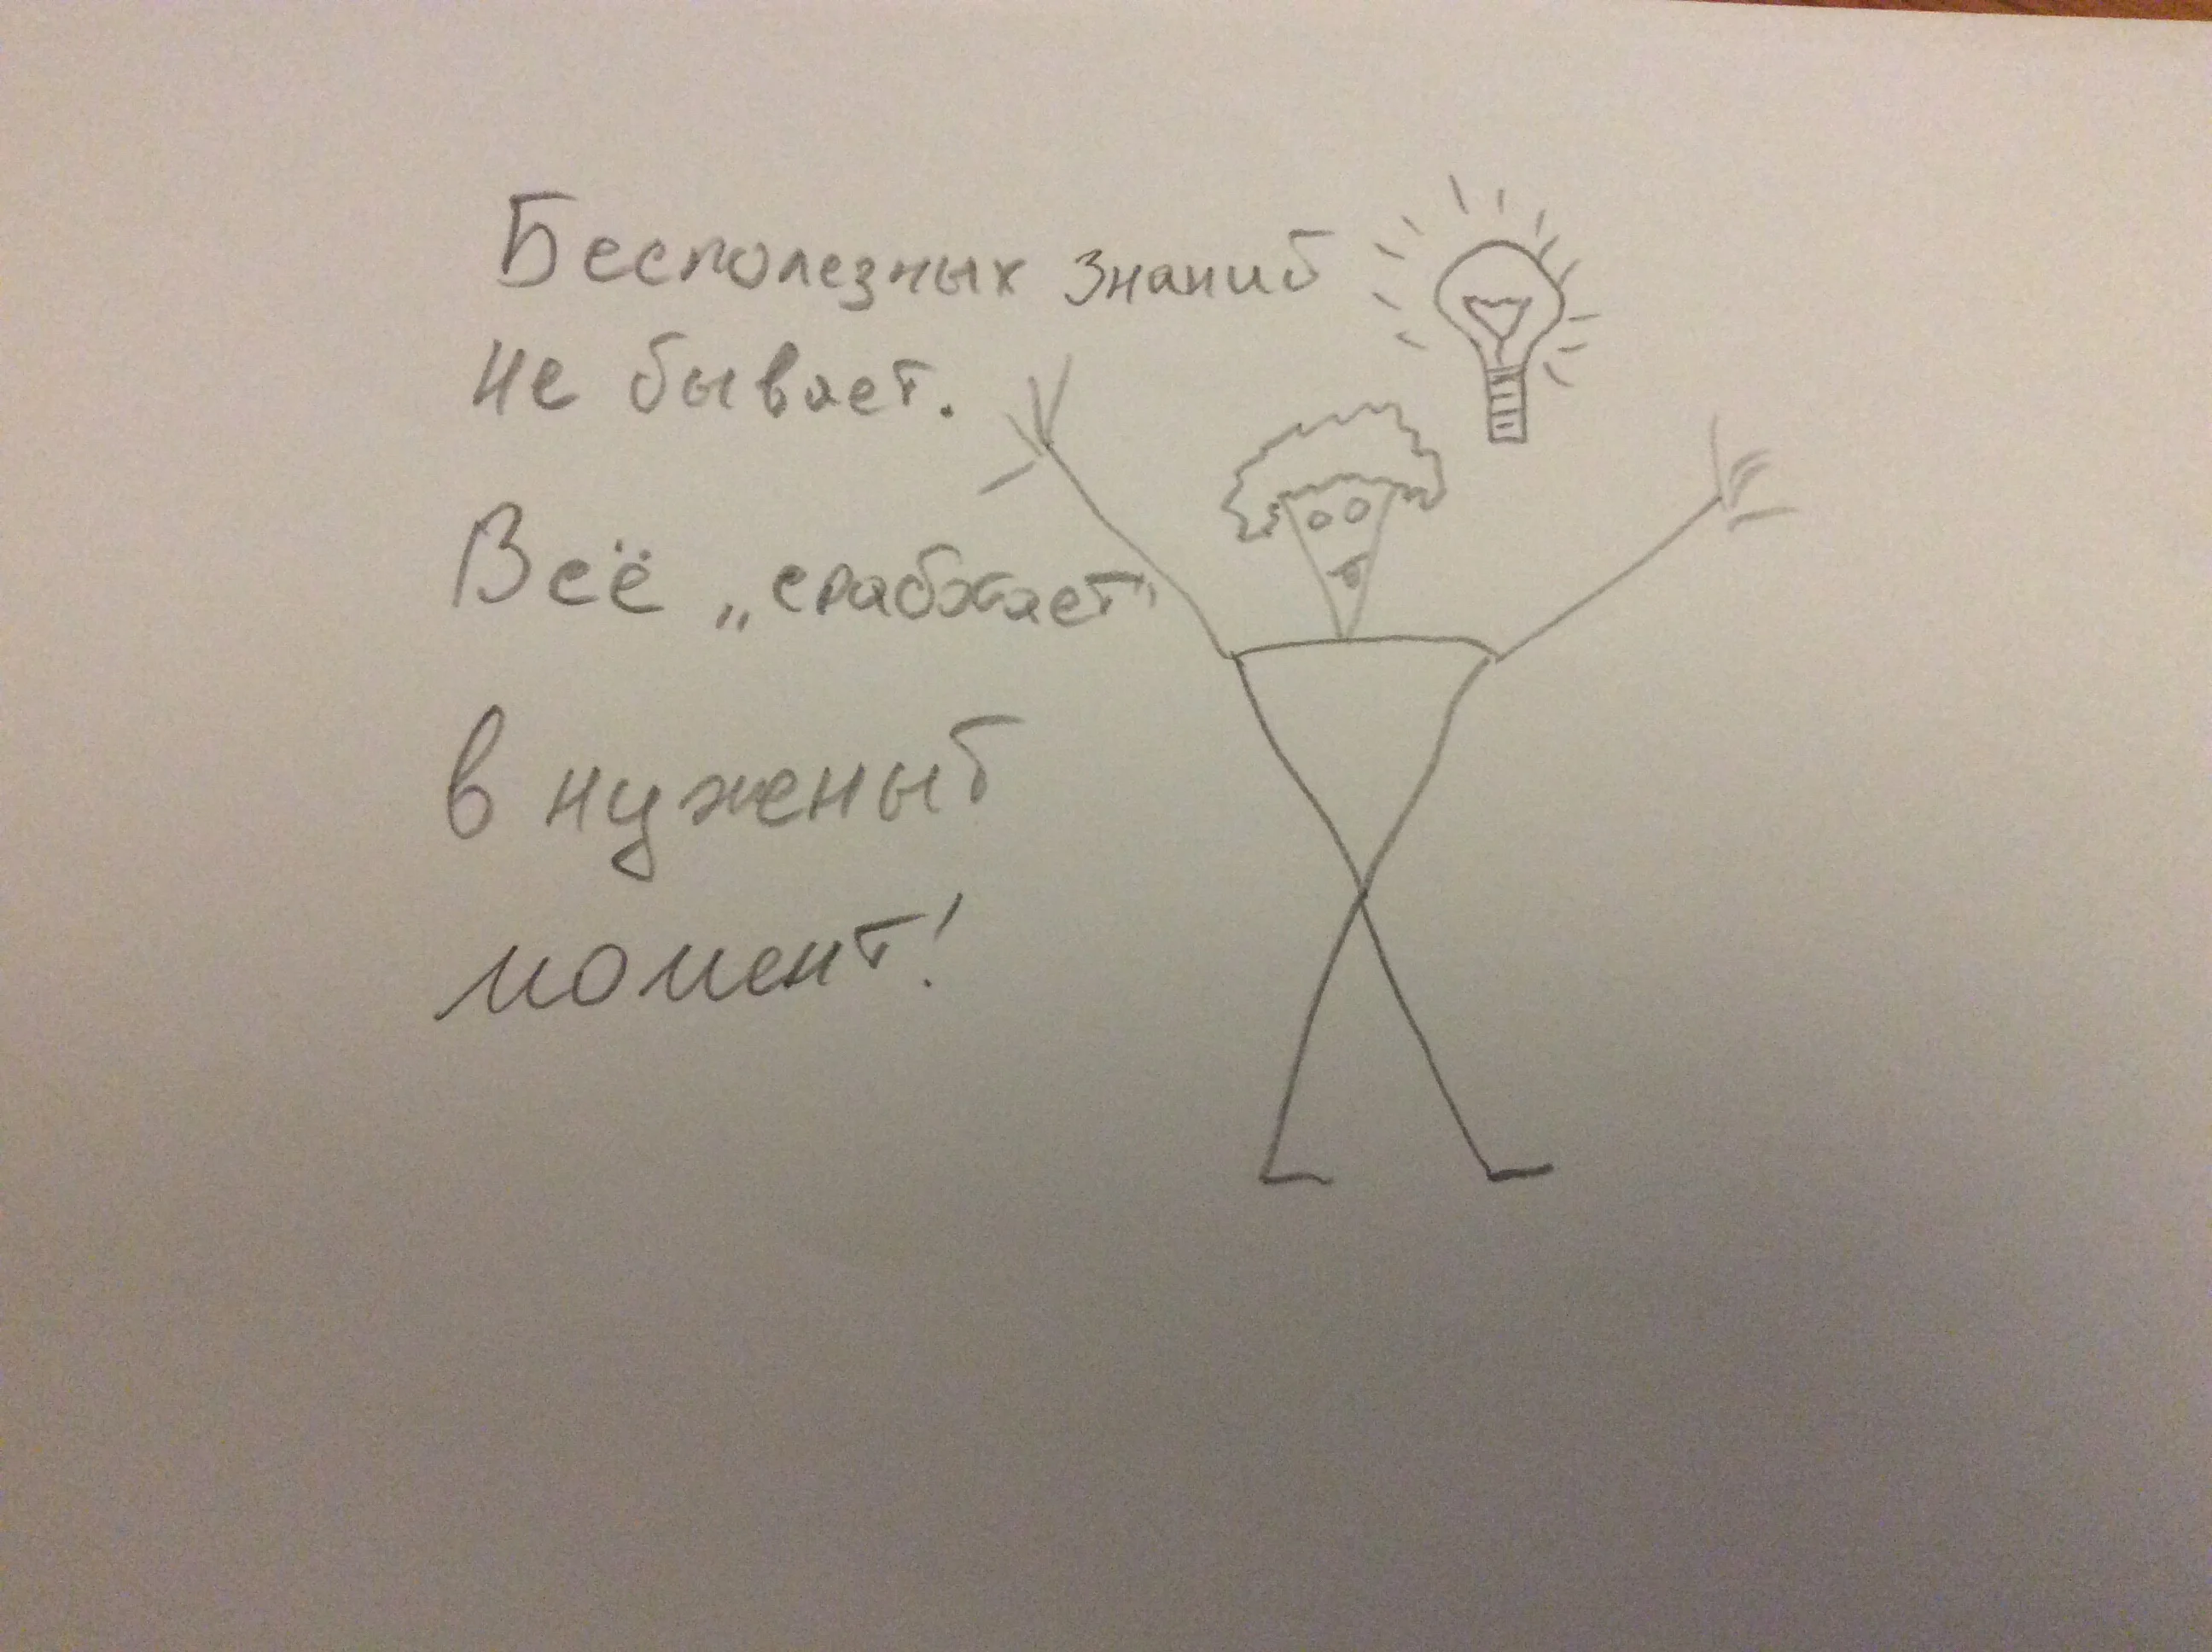 Бесполезных знаний
не бывает.
Всё „сработает"
в нуженый
момент!